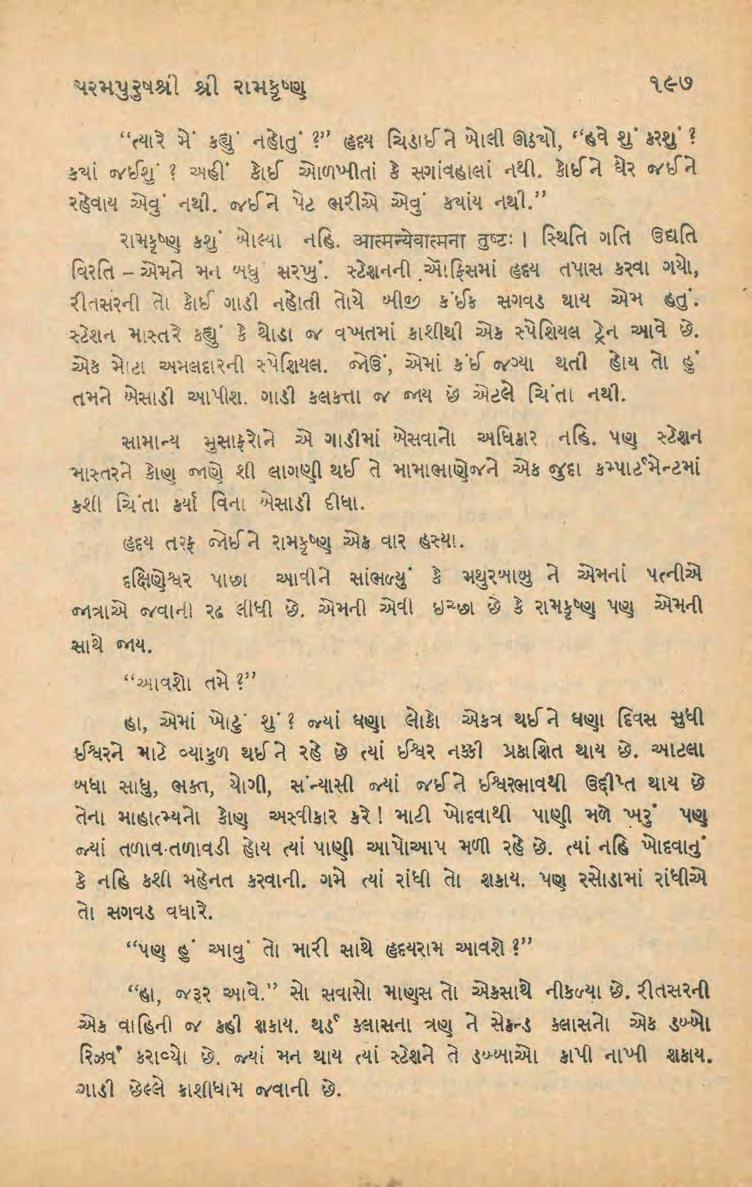 પરમપુરુષશ્રી શ્રી રામકૃષ્ણ ૧૯૭
“ત્યારે મેં કહ્યું નહોતું ?” હૃદય ચિડાઈને બોલી ઊઠ્યો, “હવે શું કરશું ?
ક્યાં જઈશું ? અહીં કોઈ ઓળખીતાં કે સગાંવહાલાં નથી. કોઈને ઘેર જઈને
રહેવાય એવું નથી. જઈને પેટ ભરીએ એવું ક્યાંય નથી.”
રામકૃષ્ણ કશું બોલ્યા નહિ. आत्मन्येवात्मना तुष्टः। સ્થિતિ ગતિ ઉદ્યતિ
વિરતિ – એમને મન બધું સરખું. સ્ટેશનની ઑફિસમાં હૃદય તપાસ કરવા ગયો,
રીતસરની તો કોઈ ગાડી નહોતી તોયે બીજી કંઈક સગવડ થાય એમ હતું.
સ્ટેશન માસ્તરે કહ્યું કે થોડા જ વખતમાં કાશીથી એક સ્પેશિયલ ટ્રેન આવે છે.
એક મોટા અમલદારની સ્પેશિયલ. જોઉં, એમાં કંઈ જગ્યા થતી હોય તો હું
તમને બેસાડી આપીશ. ગાડી કલકત્તા જ જાય છે એટલે ચિંતા નથી.
સામાન્ય મુસાફરોને એ ગાડીમાં બેસવાનો અધિકાર નહિ. પણ સ્ટેશન
માસ્તરને કોણ જાણે શી લાગણી થઈ તે મામાભાણેજને એક જુદા કમ્પાર્ટમેન્ટમાં
કશી ચિંતા કર્યા વિના બેસાડી દીધા.
હૃદય તરફ જોઈને રામકૃષ્ણ એક વાર હસ્યા.
દક્ષિણેશ્વર પાછા આવીને સાંભળ્યું કે મથુરબાબુ ને એમનાં પત્નીએ
જાત્રાએ જવાની રઢ લીધી છે. એમની એવી ઇચ્છા છે કે રામકૃષ્ણ પણ એમની
સાથે જાય.
“આવશો તમે ?”
હા, એમાં ખોટું શું ? જ્યાં ઘણા લોકો એકત્ર થઈને ઘણા દિવસ સુધી
ઈશ્વરને માટે વ્યાકુળ થઈને રહે છે ત્યાં ઈશ્વર નક્કી પ્રકાશિત થાય છે. આટલા
બધા સાધુ, ભક્ત, યોગી, સંન્યાસી જ્યાં જઈને ઈશ્વરભાવથી ઉદ્દીપ્ત થાય છે
તેના માહાત્મ્યનો કોણ અસ્વીકાર કરે ! માટી ખોદવાથી પાણી મળે ખરું પણ
જ્યાં તળાવ-તળાવડી હોય ત્યાં પાણી આપોઆપ મળી રહે છે. ત્યાં નહિ ખોદવાનું
કે નહિ કશી મહેનત કરવાની. ગમે ત્યાં રાંધી તો શકાય. પણ રસોડામાં રાંધીએ
તો સગવડ વધારે.
“પણ હું આવું તો મારી સાથે હૃદયરામ આવશે ?”
“હા, જરૂર આવે.” સો સવાસો માણસ તો એકસાથે નીકળ્યા છે. રીતસરની
એક વાહિની જ કહી શકાય. થર્ડ ક્લાસના ત્રણ ને સેકન્ડ ક્લાસનો એક ડબ્બો
રિઝર્વ કરાવ્યો છે. જ્યાં મન થાય ત્યાં સ્ટેશને તે ડબ્બાઓ કાપી નાખી શકાય.
ગાડી છેલ્લે કાશીધામ જવાની છે.